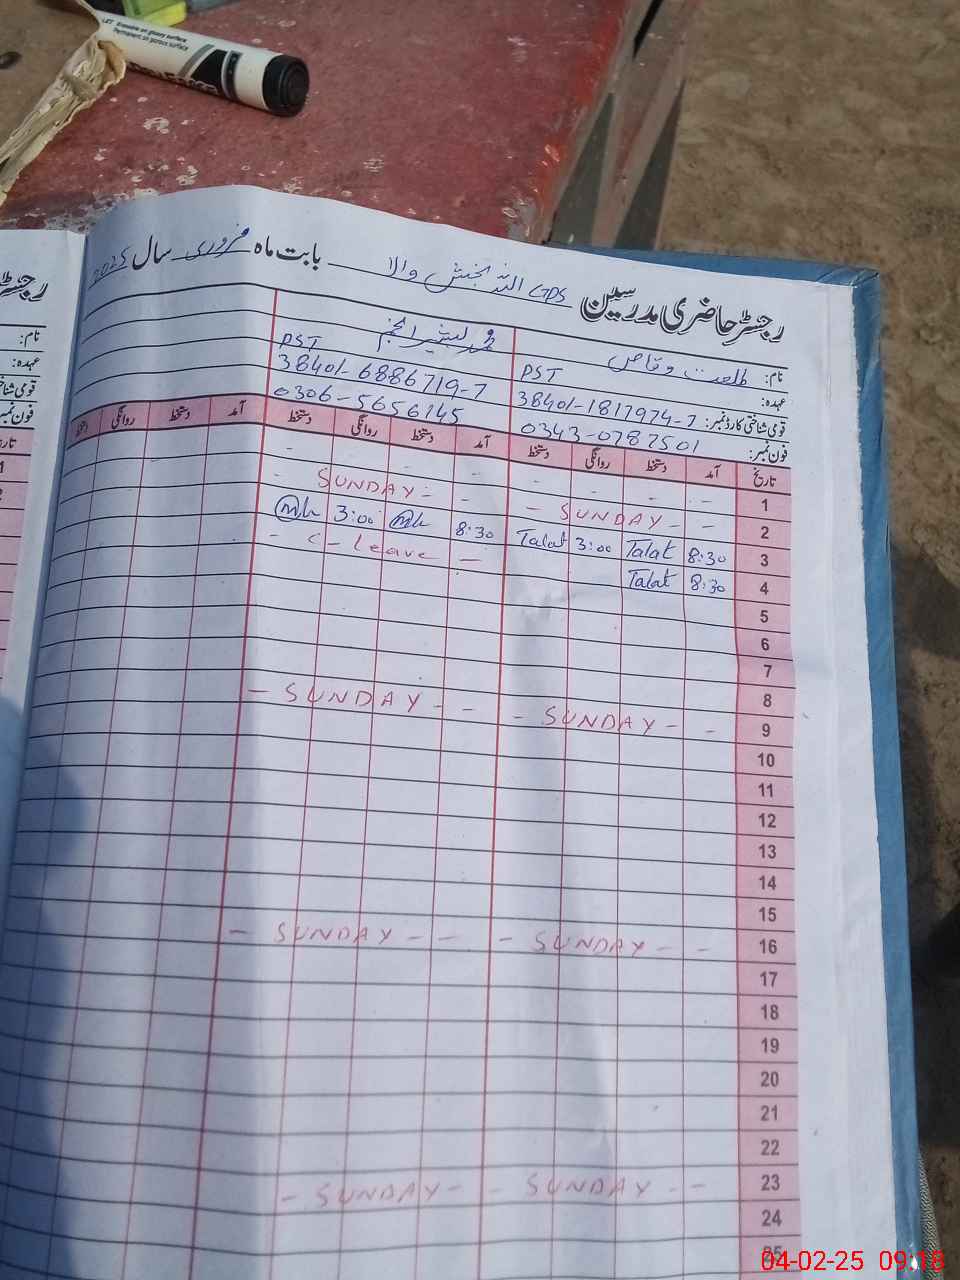 Erasable on glossy surface
Permanent on porous surface
رجسٹر حاضری مدرسین GPS اللہ بخش والا بابت ماہ فروری سال 2025
نام: طلعت وقاص
عہدہ: PST PST
قومی شناختی کارڈ نمبر: 38401-1817974-7 38401-6886719-7
فون نمبر: 0343-0787501 0306-5656145
تاریخ آمد دستخط روانگی دستخط آمد دستخط روانگی دستخط آمد دستخط روانگی دستخط
1 - - - - - - -
2 - - SUNDAY - - - SUNDAY -
3 8:30 Talat 3:00 Talat 8:30 3:00
4 8:30 Talat - C-Leave -
5
6
7
8
9 - SUNDAY - - - SUNDAY - -
10
11
12
13
14
15
16 - SUNDAY - - - SUNDAY - -
17
18
19
20
21
22
23 - SUNDAY - - - SUNDAY -
24
25
رجسٹر
نام:
عہدہ:
قومی شناختی
فون نمبر
04-02-25 09:18